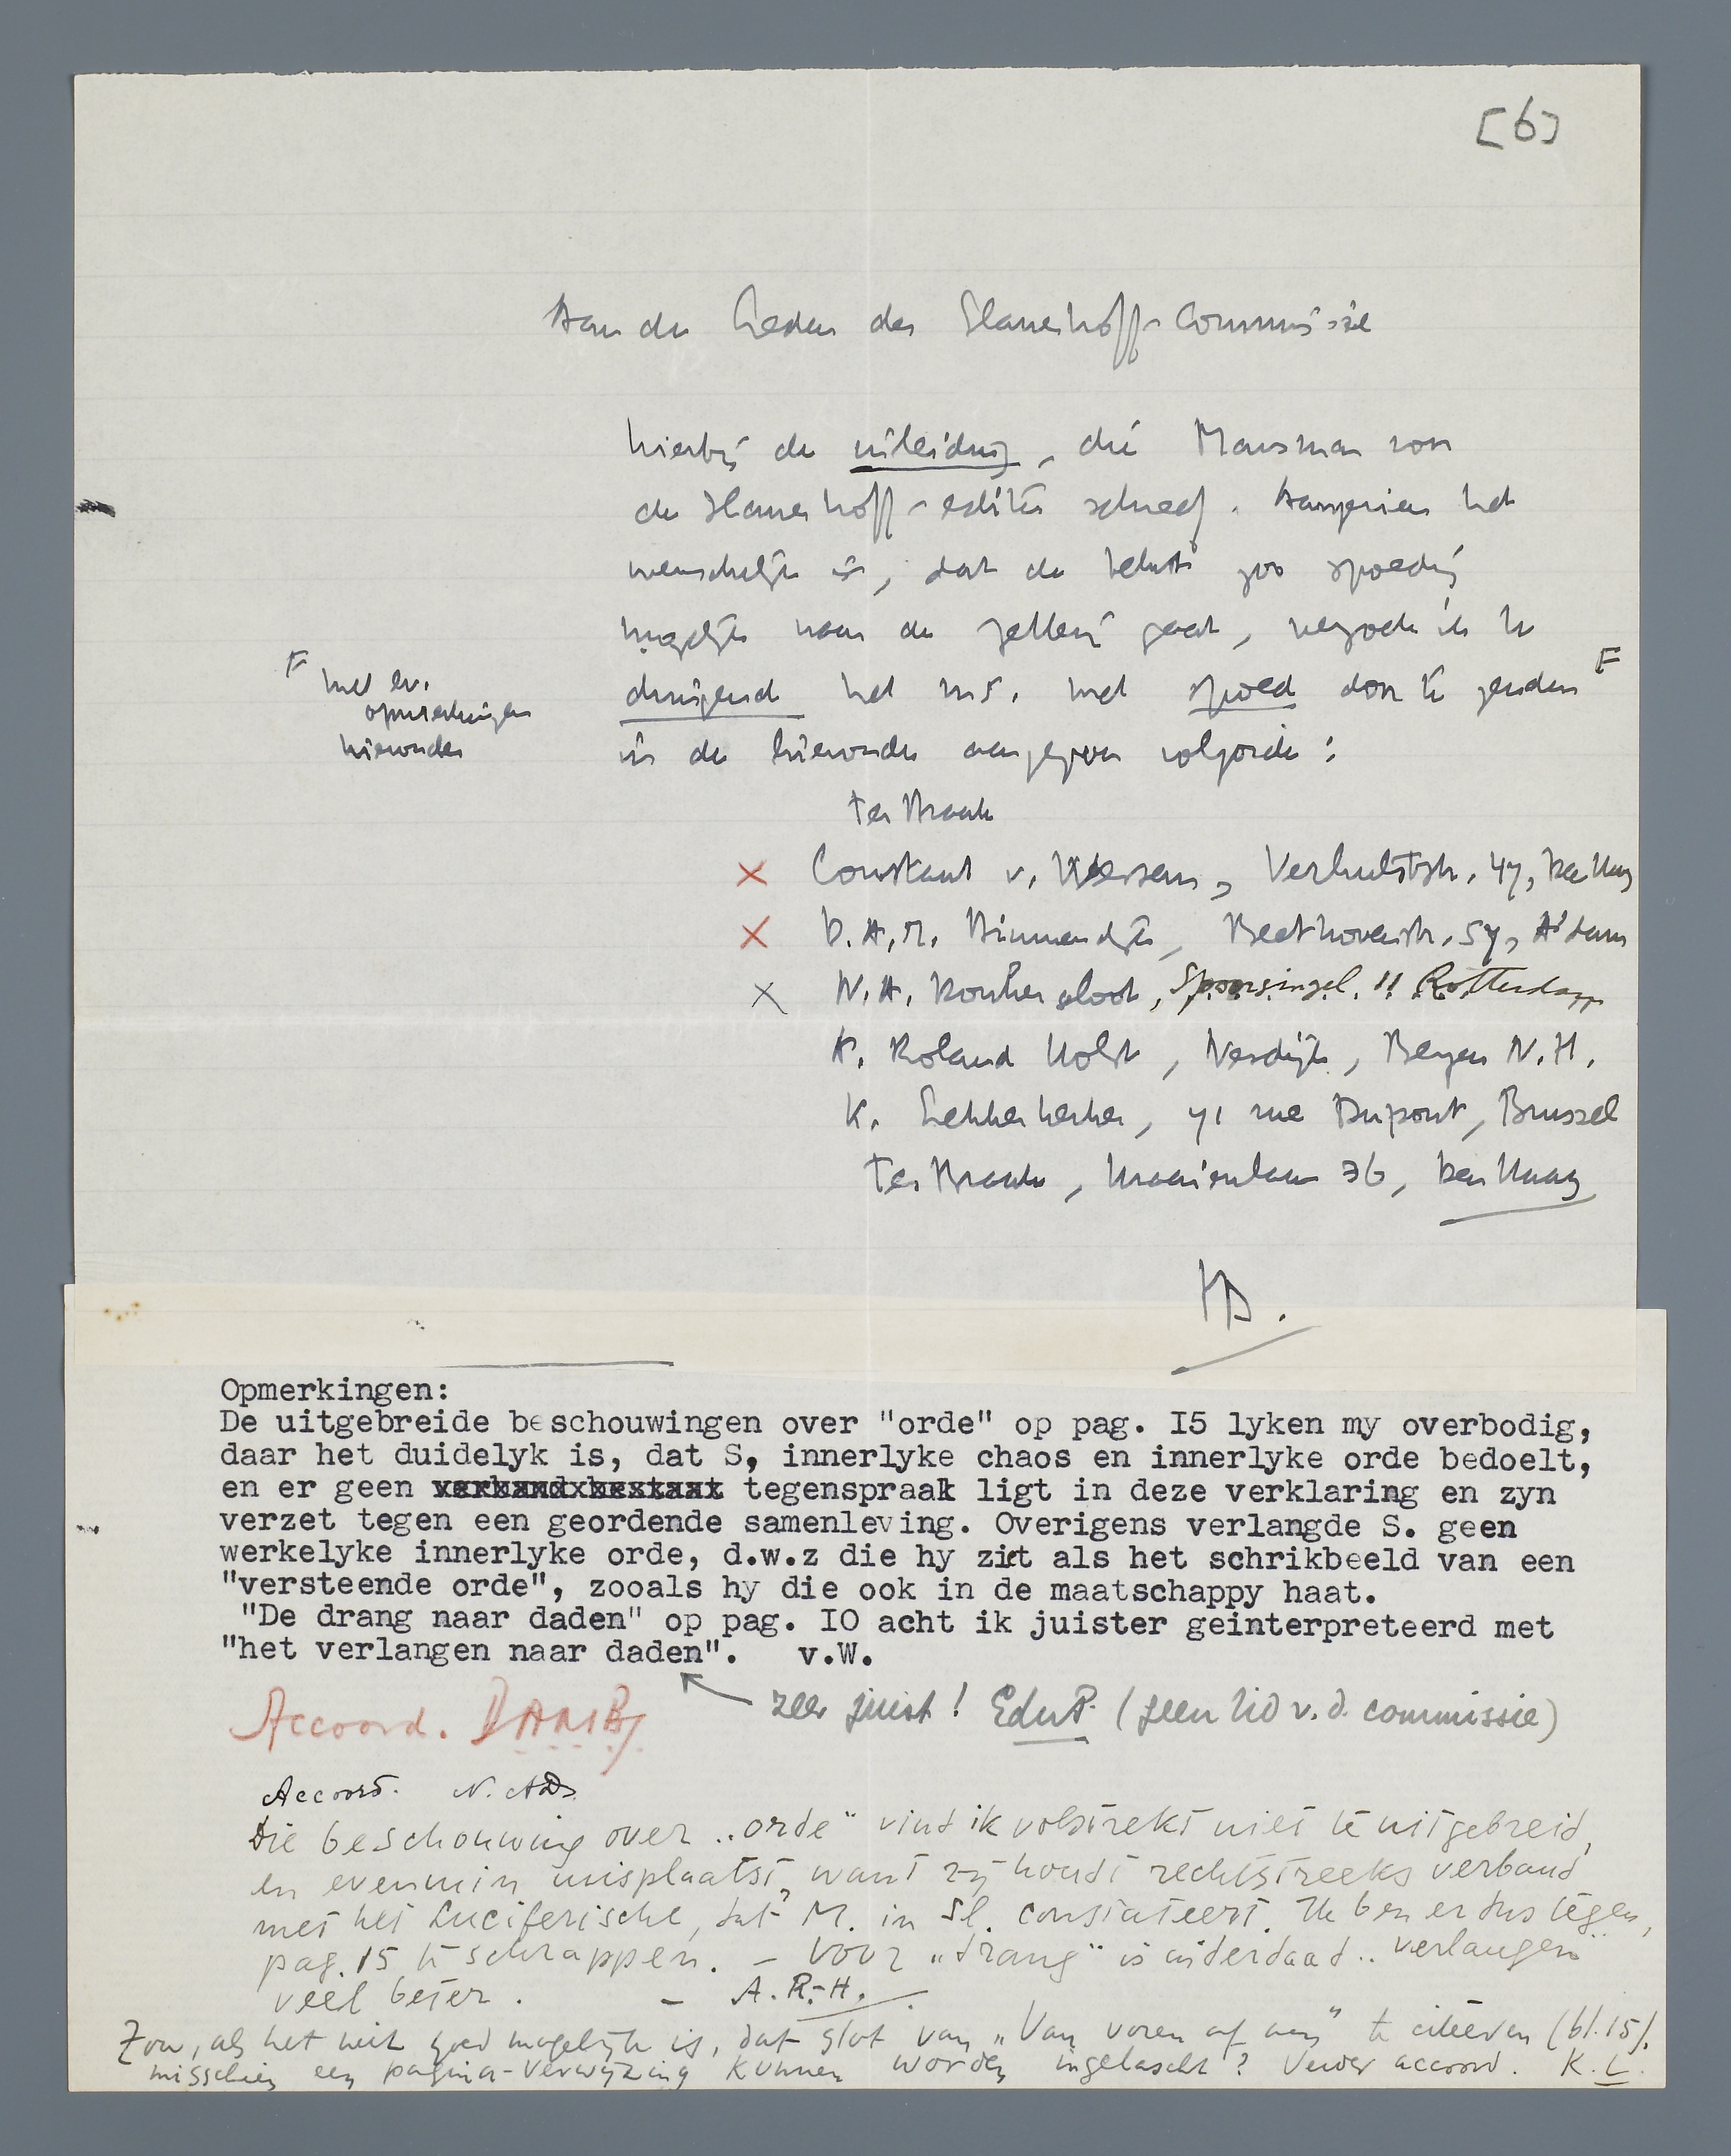 [6]
Aan de Leden der Slauerhoff-Commissie
hierbij de inleiding, die Marsman voor
de Slauerhoff-editie schreef. Aangezien het
wenschelijk is, dat de tekst zoo spoedig
mogelijk naar de zetterij gaat, verzoek ik U
dringend het ms. met spoed door te zenden F
F met ev.
opmerkingen
hieronder
in de hieronder aangegeven volgorde:
ter Braak
x Constant v. Wessem, Verhulststr. 47, Den Haag
x D.A.M. Binnendijk, Beethovenstr. 57, A'dam
x N.A. Donkersloot, Spoorsingel 11 Rotterdam
A. Roland Holst, Nesdijk, Bergen N.H.
K. Lekkerkerker, 71 rue Dupont, Brussel
Ter Braak, Kraaienlaan 36, Den Haag
Opmerkingen:
De uitgebreide beschouwingen over "orde" op pag. I5 lyken my overbodig,
daar het duidelyk is, dat S, innerlyke chaos en innerlyke orde bedoelt,
en er geen verband bestaat tegenspraak ligt in deze verklaring en zyn
verzet tegen een geordende samenleving. Overigens verlangde S. geen
werkelyke innerlyke orde, d.w.z die hy ziet als het schrikbeeld van een
"versteende orde", zooals hy die ook in de maatschappy haat.
"De drang naar daden" op pag. IO acht ik juister geinterpreteerd met
"het verlangen naar daden". v.W.
zeer juist! EduP. (geen lid v.d. commissie)
Accoord. DAMBy
Accoord. N.AD.
Die beschouwing over „orde" vind ik volstrekt niet te uitgebreid,
en evenmin misplaatst, want zij houdt rechtstreeks verband
met het Luciferische, dat M. in Sl. constateert. Ik ben er dus tegen,
pag. 15 te schrappen. – Voor „drang" is inderdaad „verlangen"
veel beter. – A.R.-H.
Zou, als het niet goed mogelijk is, dat slot van „Van voren af aan" te citeeren (bl. 15),
misschien een pagina-verwijzing kunnen worden ingelascht? Verder accoord. K.L.